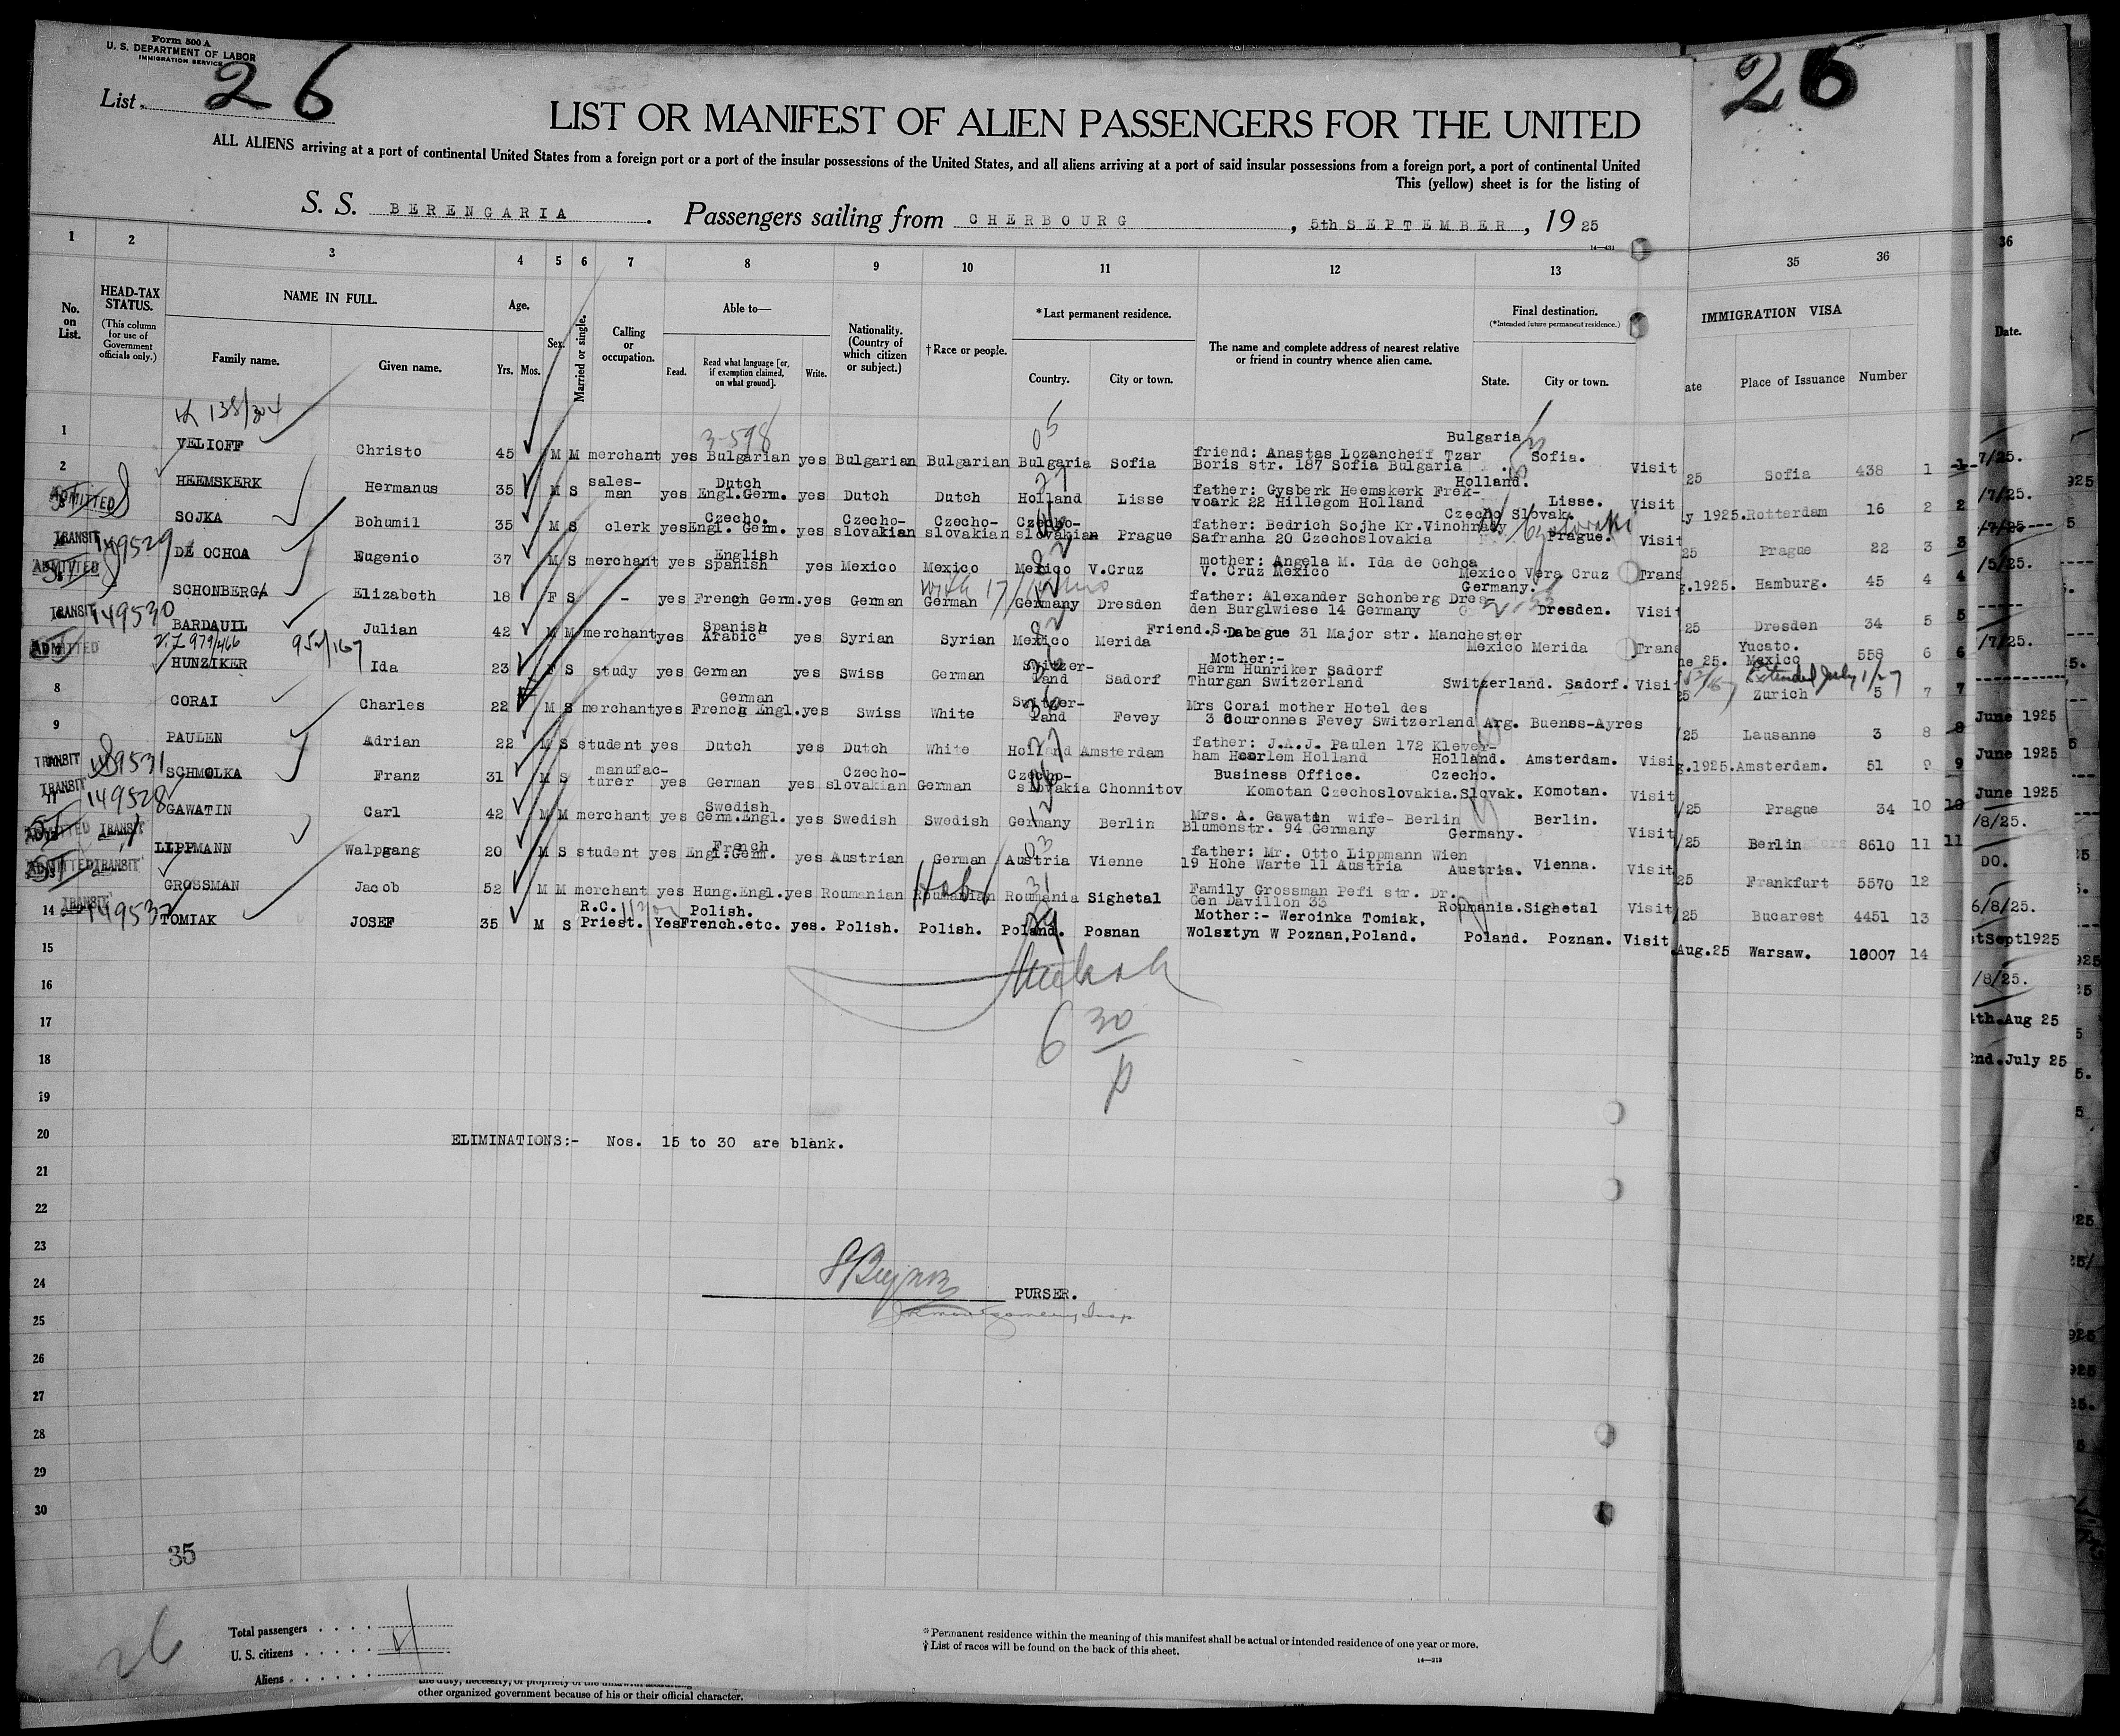 Form 500 A
U. S. DEPARTMENT OF LABOR
IMMIGRATION SERVICE
List 26
26
LIST OR MANIFEST OF ALIEN PASSENGERS FOR THE UNITED
ALL ALIENS arriving at a port of continental United States from a foreign port or a port of the insular possessions of the United States, and all aliens arriving at a port of said insular possessions from a foreign port, a port of continental United
This (yellow) sheet is for the listing of
S. S. BERENGARIA. Passengers sailing from CHERBOURG, 5th SEPTEMBER, 1925
14-431
1 2 3 4 5 6 7 8 9 10 11 12 13 35 36 36
No. on List. HEAD-TAX STATUS. (This column for use of Government officials only.) NAME IN FULL. Family name. Given name. Age. Yrs. Mos. Sex. Married or single. Calling or occupation. Able to— Read. Read what language [or, if exemption claimed, on what ground]. Write. Nationality. (Country of which citizen or subject.) † Race or people. * Last permanent residence. Country. City or town. The name and complete address of nearest relative or friend in country whence alien came. Final destination. (*Intended future permanent residence.) State. City or town. IMMIGRATION VISA ate Place of Issuance Number Date.
138/304
3-598
05
1 VELIOFF Christo 45 M M merchant yes Bulgarian yes Bulgarian Bulgarian Bulgaria Sofia friend: Anastas Lozancheff Tzar Boris str. 187 Sofia Bulgaria Bulgaria Sofia. Visit 25 Sofia 438 1 1 7/25.
2 HEEMSKERK Hermanus 35 M S sales-man yes Dutch Engl.Germ. yes Dutch Dutch Holland Lisse father: Gysberk Heemskerk Frek-voark 22 Hillegom Holland Holland. Lisse. Visit y 1925. Rotterdam 16 2 2 /7/25.
ADMITTED SOJKA Bohumil 35 M S clerk yes Czecho. Engl. Germ. yes Czecho-slovakian Czecho-slovakian Czecho-slovakian Prague father: Bedrich Sojhe Kr.Vinohrady Safranha 20 Czechoslovakia Czecho Slovak. Prague. Visit 25 Prague 22 3 3 /7/25
TRANSIT 149529 DE OCHOA Eugenio 37 M S merchant yes English Spanish yes Mexico Mexico Mexico V.Cruz mother: Angela M. Ida de Ochoa V. Cruz Mexico Mexico Vera Cruz Trans g.1925. Hamburg. 45 4 4 /5/25.
ADMITTED SCHONBERG Elizabeth 18 F S - yes French Germ. yes German German Germany Dresden father: Alexander Schonberg Dres-den Burglwiese 14 Germany Germany. Dresden. Visit 25 Dresden 34 5 5
TRANSIT 149530 BARDAUIL Julian 42 M M merchant yes Spanish Arabic yes Syrian Syrian Mexico Merida Friend.S.Dabague 31 Major str. Manchester Mexico Merida Trans ne 25. Yucato. Mexico 558 6 6 /7/25.
ADMITTED 979/466 HUNZIKER Ida 23 F S study yes German yes Swiss German Switzer-land Sadorf Mother:- Herm Hunriker Sadorf Thurgan Switzerland Switzerland. Sadorf. Visit 25 Zurich 5 7 7
Extended July 1/27
8 CORAI Charles 22 M S merchant yes German French Engl. yes Swiss White Switzer-land Fevey Mrs Corai mother Hotel des 3 Couronnes Fevey Switzerland Arg. Buenos-Ayres /25 Lausanne 3 8 8 June 1925
9 PAULEN Adrian 22 M S student yes Dutch yes Dutch White Holland Amsterdam father: J.A.J. Paulen 172 Klever-ham Haarlem Holland Holland. Amsterdam. Visi g.1925. Amsterdam. 51 9 9 June 1925
TRANSIT 149531 SCHMOLKA Franz 31 M S manufac-turer yes German yes Czecho-slovakian German Czecho-slovakia Chonnitov Business Office. Komotan Czechoslovakia. Czecho. Slovak. Komotan. Visit /25 Prague 34 10 10 June 1925
TRANSIT 11 149528 GAWATIN Carl 42 M M merchant yes Swedish Germ.Engl. yes Swedish Swedish Germany Berlin Mrs. A. Gawatin wife- Berlin Blumenstr. 94 Germany Germany. Berlin. Visit /25 Berlin 8610 11 11 /8/25.
ADMITTED TRANSIT LIPPMANN Walpgang 20 M S student yes French Engl.Germ. yes Austrian German Austria Vienne father: Mr. Otto Lippmann Wien 19 Hohe Warte 11 Austria Austria. Vienna. Visit 25 Frankfurt 5570 12 DO.
ADMITTED TRANSIT GROSSMAN Jacob 52 M M merchant yes Hung.Engl. yes Roumanian Roumanian Heb Roumania Sighetal Family Grossman Pefi str. Dr. Cen Davillon 33 Roumania. Sighetal Visit /25 Bucarest 4451 13 6/8/25.
14 TRANSIT 149532 TOMIAK JOSEF 35 M S R.C. Priest. Yes Polish. French.etc. yes. Polish. Polish. Poland. Posnan Mother:- Weroinka Tomiak, Wolsztyn W Poznan,Poland. Poland. Poznan. Visit. Aug.25 Warsaw. 10007 14 tSept1925
/8/25.
4th.Aug 25
2nd.July 25
15
16
17
6 30 p
18
19
20 ELIMINATIONS:- Nos. 15 to 30 are blank.
21
22
23
24 PURSER.
25
26
27
28
29
30
35
26
Total passengers
U. S. citizens
Aliens
* Permanent residence within the meaning of this manifest shall be actual or intended residence of one year or more.
† List of races will be found on the back of this sheet.
14—213
other organized government because of his or their official character.